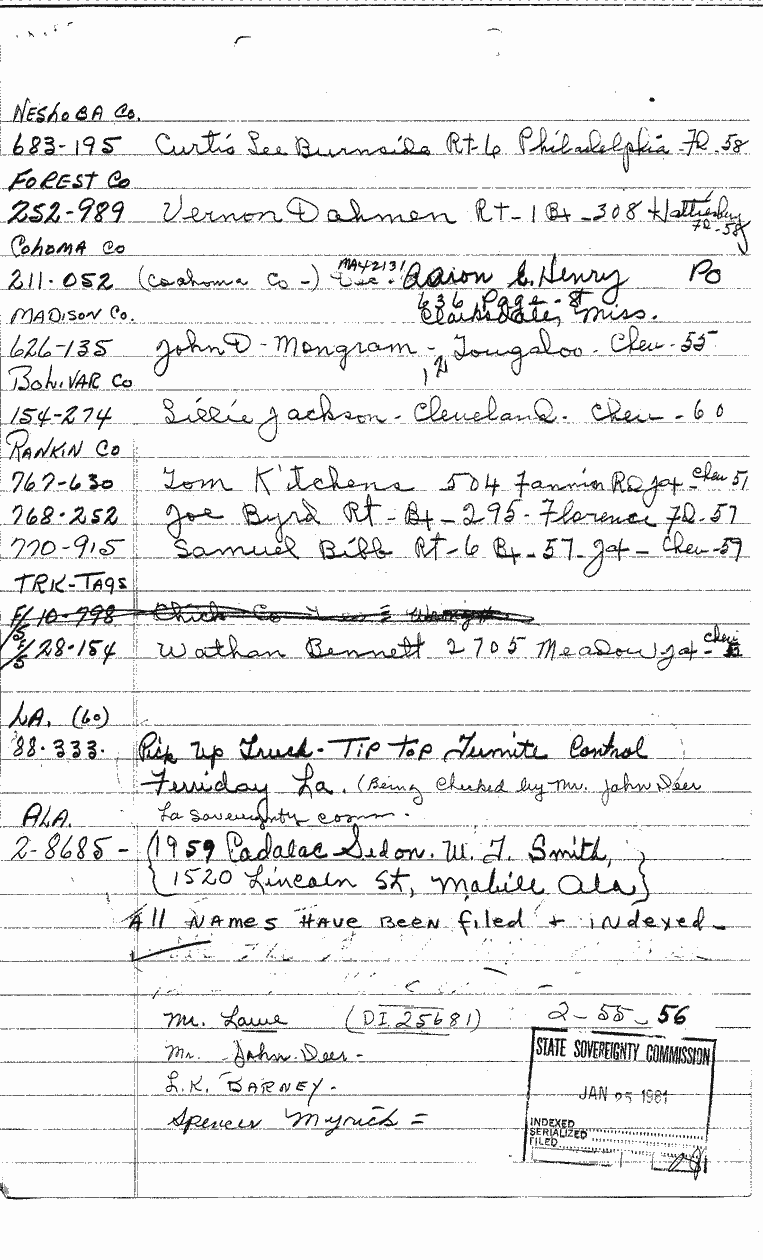 NEShoBA Co.
683-195 Curtis Lee Burnside Rt-6 Philadelphia-FD-58
FOREST Co
252-989 Vernon Dahmen Rt-1 Bx-308 Hattiesburg
FD-58
COhOMA Co
211-052 (Coahoma Co-) MA42131 Aaron E. Henry PO
636 Page-St
Clarksdale, Miss.
MADISON Co.
626-135 John D-Mangram-Tougaloo-Chev-55
BOLIVAR Co
154-274 Lillie Jackson-Cleveland-Chev-60
RANKIN Co
767-630 Tom Kitchens 504 Fannin Rd Jax-Chev 51
768-252 Joe Byrd Rt-Bx-295-Florence FD-57
770-915 Samuel Bibb Rt-6 Bx-57-Jax-Chev-59
TRK-TAgS
F/10-798 Chick Co
F/28-154 Wathan Bennett 2705 Meadow Jax-chev
LA. (60)
88-333- Pick Up Truck-Tip Top Termite Control
Ferriday La. (Being Checked by Mr. John Deer
La Sovereignty comm-
ALA.
2-8685- (1959 Cadalac Sedon. W. T. Smith,
1520 Lincoln St, Mobill Ala)
All NAMES HAVE BEEN filed + iNdexed-
Mr. Lawe (DI 25681) 2-55-56
Mr. John Deer-
L.K. BARNEY-
Spencer Myrick=
STATE SOVEREIGNTY COMMISSION
JAN 25 1961
INDEXED
SERIALIZED
FILED